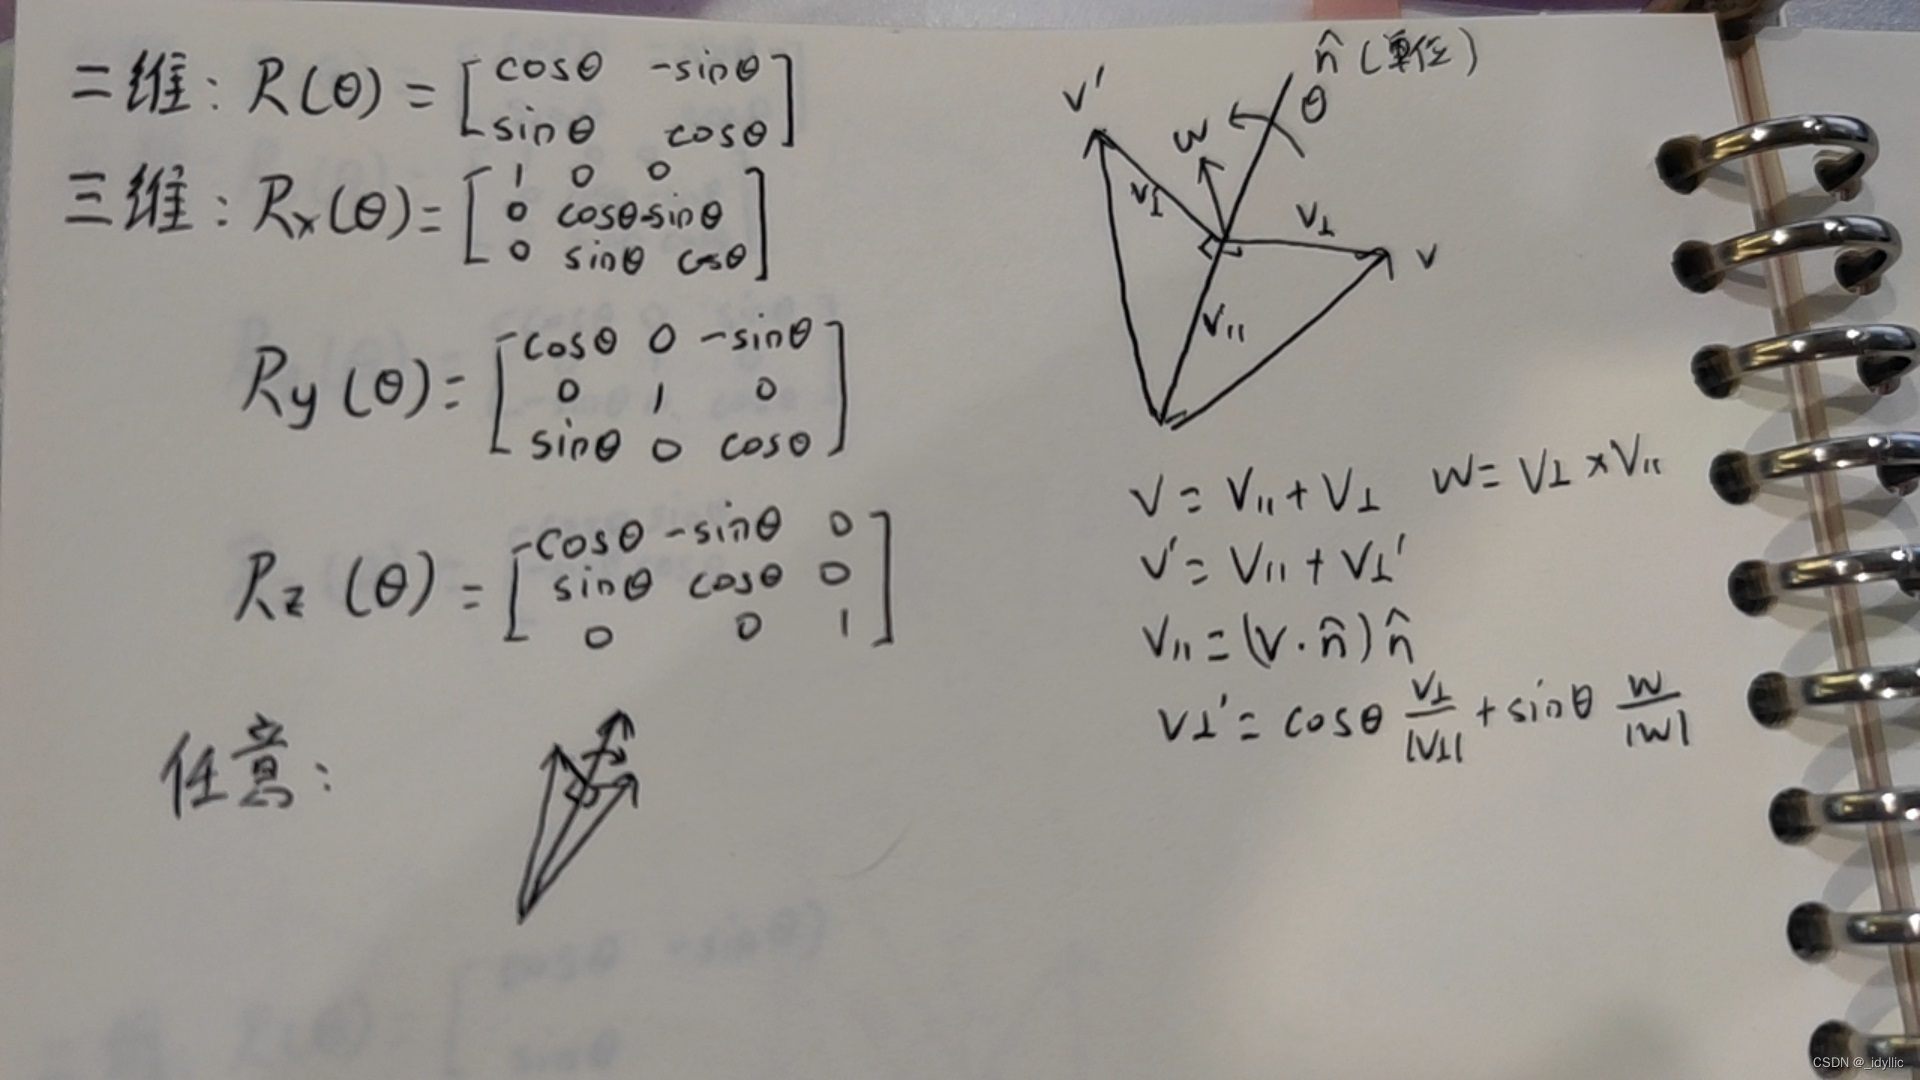 二维: R(θ) = [cosθ -sinθ
sinθ cosθ]
三维: Rx(θ) = [1 0 0
0 cosθ -sinθ
0 sinθ cosθ]
Ry (θ) = [cosθ 0 -sinθ
0 1 0
sinθ 0 cosθ]
Rz (θ) = [cosθ -sinθ 0
sinθ cosθ 0
0 0 1]
任意:
n̂ (单位)
θ
v'
w
v⊥'
v⊥
v
v∥
v = v∥ + v⊥ w = v⊥ × v∥
v' = v∥ + v⊥'
v∥ = (v · n̂) n̂
v⊥' = cosθ v⊥/|v⊥| + sinθ w/|w|
CSDN @_idyllic